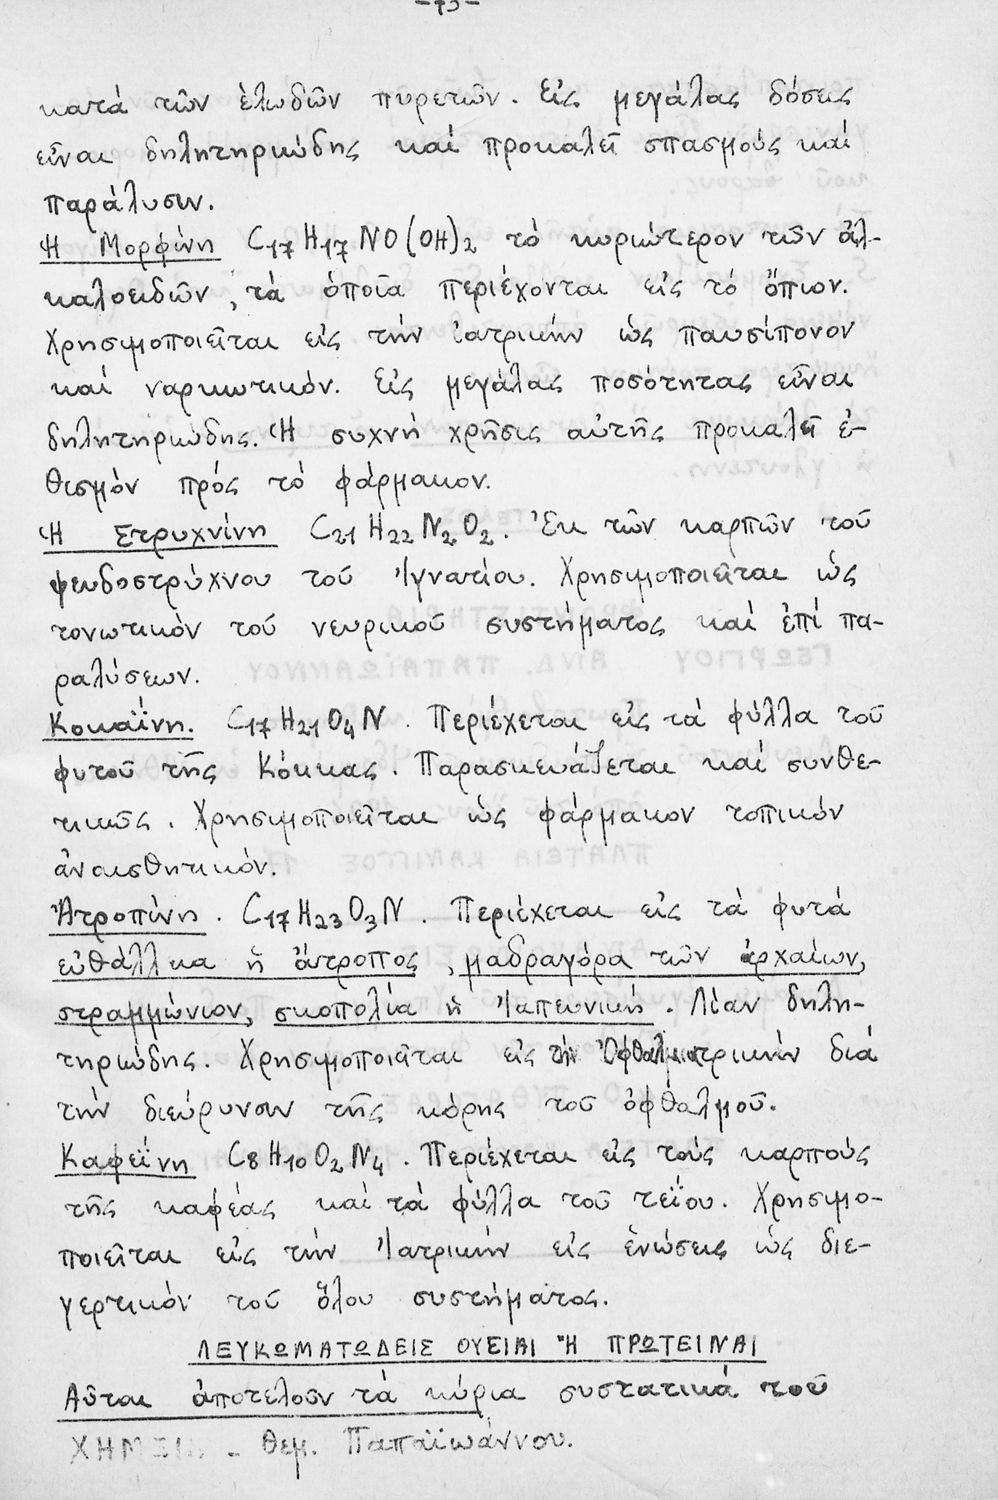 -73-
κατά τῶν ἑλωδῶν πυρετῶν. Εἰς μεγάλας δόσεις
εἶναι δηλητηριώδης καί προκαλεῖ σπασμούς καί
παράλυσιν.
Ἡ Μορφίνη C17H17NO(OH)2 τό κυριώτερον τῶν ἀλ-
καλοειδῶν, τά ὁποῖα περιέχονται εἰς τό ὄπιον.
Χρησιμοποιεῖται εἰς τήν ἰατρικήν ὡς παυσίπονον
καί ναρκωτικόν. Εἰς μεγάλας ποσότητας εἶναι
δηλητηριώδης. Ἡ συχνή χρῆσις αὐτῆς προκαλεῖ ἐ-
θισμόν πρός τό φάρμακον.
Ἡ Στρυχνίνη C21H22N2O2. Ἐκ τῶν καρπῶν τοῦ
ψευδοστρύχνου τοῦ Ἰγνατίου. Χρησιμοποιεῖται ὡς
τονωτικόν τοῦ νευρικοῦ συστήματος καί ἐπί πα-
ραλύσεων.
Κοκαΐνη. C17H21O4N. Περιέχεται εἰς τά φύλλα τοῦ
φυτοῦ τῆς Κόκκας. Παρασκευάζεται καί συνθε-
τικῶς. Χρησιμοποιεῖται ὡς φάρμακον τοπικόν
ἀναισθητικόν.
Ἀτροπίνη. C17H23O3N. Περιέχεται εἰς τά φυτά
εὐθάλλεια ἤ ἄτροπος, μαδραγόρα τῶν ἀρχαίων,
στραμμώνιον, σκοπολία ἤ Ἰαπωνική. Λίαν δηλη-
τηριώδης. Χρησιμοποιεῖται εἰς τήν Ὀφθαλμιατρικήν διά
τήν διεύρυνσιν τῆς κόρης τοῦ ὀφθαλμοῦ.
Καφεΐνη C8H10O2N4. Περιέχεται εἰς τούς καρπούς
τῆς καφέας καί τά φύλλα τοῦ τεΐου. Χρησιμο-
ποιεῖται εἰς τήν Ἰατρικήν εἰς ἑνώσεις ὡς διε-
γερτικόν τοῦ ὅλου συστήματος.
ΛΕΥΚΩΜΑΤΩΔΕΙΣ ΟΥΣΙΑΙ Ἤ ΠΡΩΤΕΙΝΑΙ
Αὗται ἀποτελοῦν τά κύρια συστατικά τοῦ
ΧΗΜΕΙΑ - Θεμ. Παπαϊωάννου.